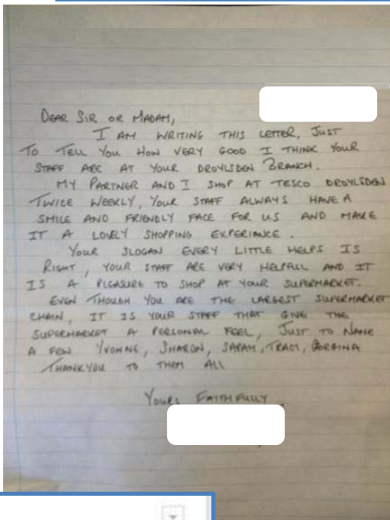 DEAR SIR OR MADAM,
I AM WRITING THIS LETTER, JUST
TO TELL YOU HOW VERY GOOD I THINK YOUR
STAFF ARE AT YOUR DROYLSDEN BRANCH.
MY PARTNER AND I SHOP AT TESCO DROYLSDEN
TWICE WEEKLY, YOUR STAFF ALWAYS HAVE A
SMILE AND FRIENDLY FACE FOR US AND MAKE
IT A LOVELY SHOPPING EXPERIANCE.
YOUR SLOGAN EVERY LITTLE HELPS IS
RIGHT, YOUR STAFF ARE VERY HELPFULL AND IT
IS A PLEASURE TO SHOP AT YOUR SUPERMARKET.
EVEN THOUGH YOU ARE THE LARGEST SUPERMARKET
CHAIN, IT IS YOUR STAFF THAT GIVE THE
SUPERMARKET A PERSONAL FEEL, JUST TO NAME
A FEW YVONNE, SHARON, SARAH, TRACY,
THANKYOU TO THEM ALL
YOURS FAITHFULLY